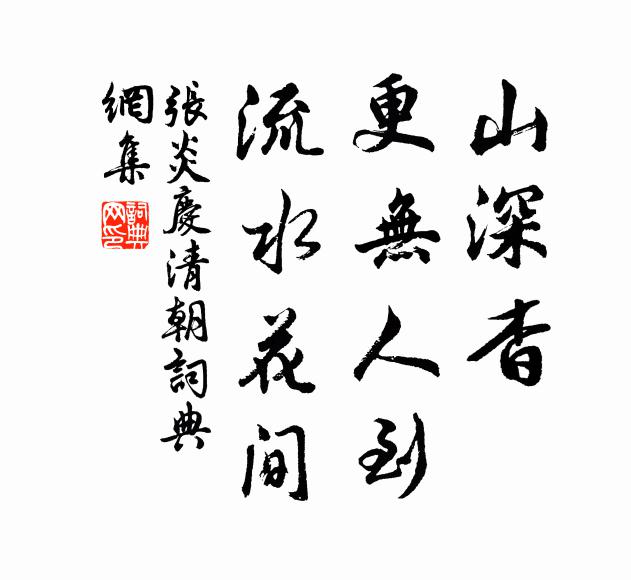 山深杳
更無人到
流水花间
張炎慶清朝詞典
網集
詞典
网印